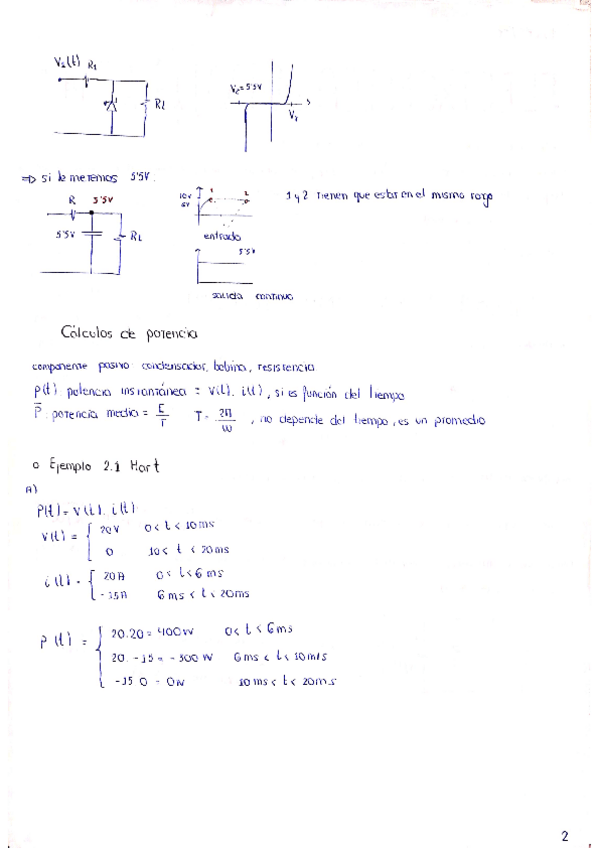 V₂(t) R₁
R2
Vz=5'5V
Vγ
=D si le metemos 5'5V:
R 5'5V
5'5V
RL
10V
6V
1 2
entrada
5'5V
salida continua
1 y 2 tienen que estar en el mismo rango
Cálculos de potencia
componente pasivo condensador, bobina, resistencia
p(t): potencia instantánea = v(t). i(t), si es función del tiempo
P̅: potencia media = E/T T = 2π/W , no depende del tiempo, es un promedio
o Ejemplo 2.1 Hart
A)
P(t) = v(t). i(t)
v(t) = { 20V 0 < t < 10ms
0 10 < t < 20ms
i(t) = { 20A 0 < t < 6ms
-15A 6ms < t < 20ms
p(t) = { 20.20 = 400W 0 < t < 6ms
20. -15 = -300W 6ms < t < 10m/s
-15 0 = 0W 10ms < t < 20ms
2